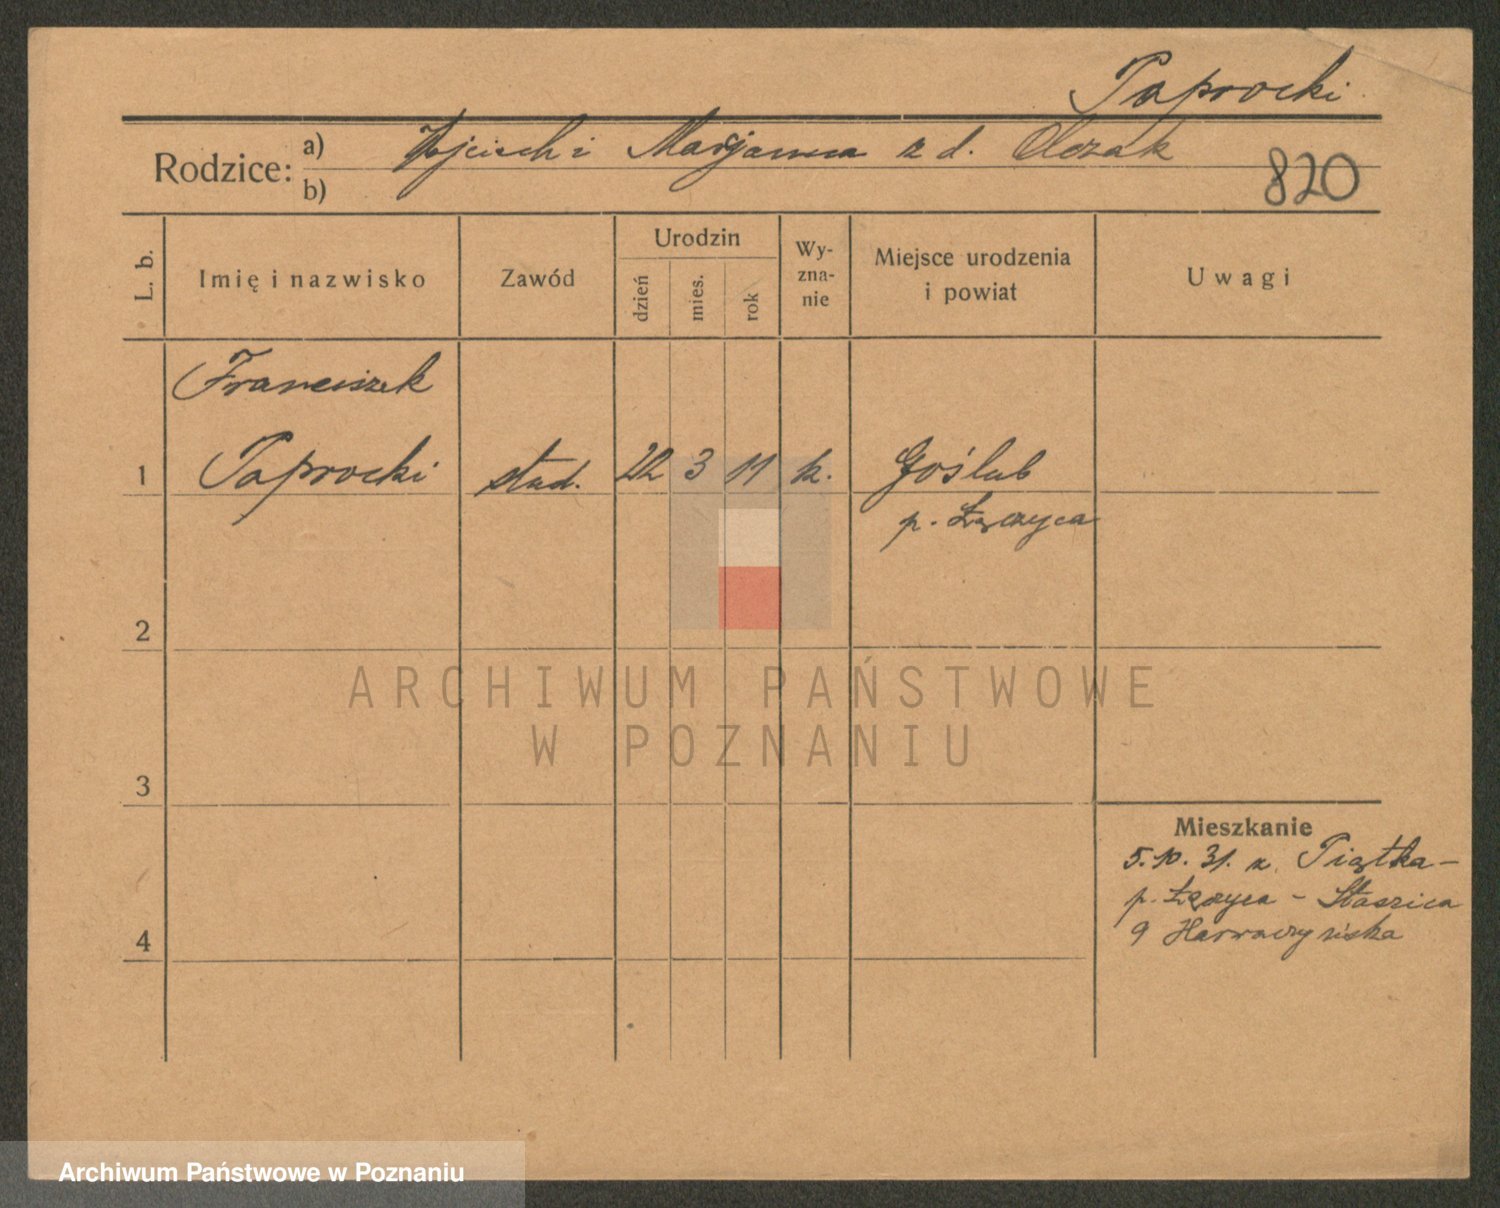 Paprocki
Rodzice: a) Wojciech i Marjanna z d. Olczak
b)
820
L. b.
Imię i nazwisko
Zawód
Urodzin
dzień
mies.
rok
Wy-
zna-
nie
Miejsce urodzenia
i powiat
Uwagi
Franciszek
1 Paprocki stud. 22 3 11 k. Goślub
p. Łęczyca
2
ARCHIWUM PAŃSTWOWE
W POZNANIU
3
Mieszkanie
5.10.31. z. Piątka –
p. Łęczyca – Staszica
4 9
Archiwum Państwowe w Poznaniu